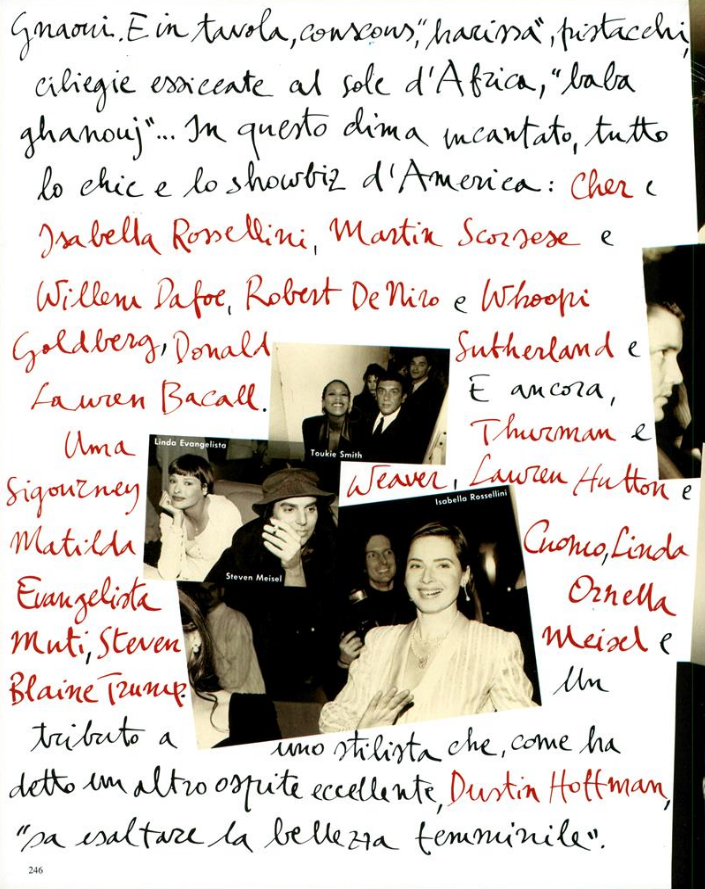 Gnaoui. E in tavola, couscous, "harissa", pistacchi,
ciliegie essiccate al sole d'Africa, "baba
ghanouj"... In questo clima incantato, tutto
lo chic e lo showbiz d'America: Cher e
Isabella Rossellini, Martin Scorsese e
Willem Dafoe, Robert De Niro e Whoopi
Goldberg, Donald Sutherland e
Lauren Bacall. E ancora,
Uma Thurman e
Sigourney Weaver, Lauren Hutton e
Matilda Cuomo, Linda
Evangelista Ornella
Muti, Steven Meisel e
Blaine Trump. Un
tributo a uno stilista che, come ha
detto un altro ospite eccellente, Dustin Hoffman,
"sa esaltare la bellezza femminile".
Toukie Smith
Linda Evangelista
Steven Meisel
Isabella Rossellini
246